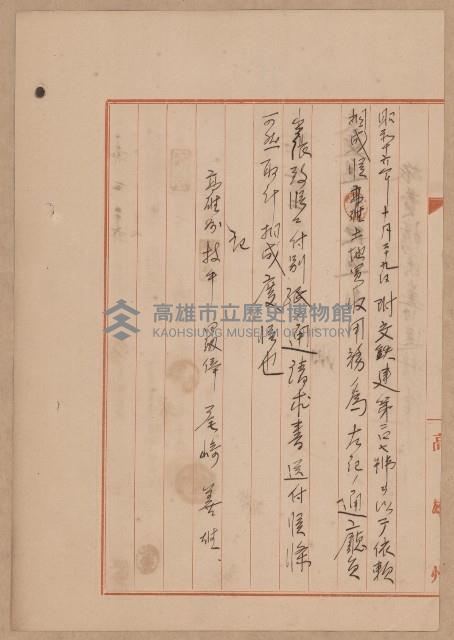 昭和十六年十月二十九日附交鉄建第三〇七號ヲ以テ依頼
相成候高雄土地買収用務ノ為左記ノ通廳員
出張致候ニ付別紙ノ通請求書送付候條
可然取計相成度候也
記
高雄州技手 尾崎善雄
高雄州
高雄市立歷史博物館
KAOHSIUNG MUSEUM OF HISTORY